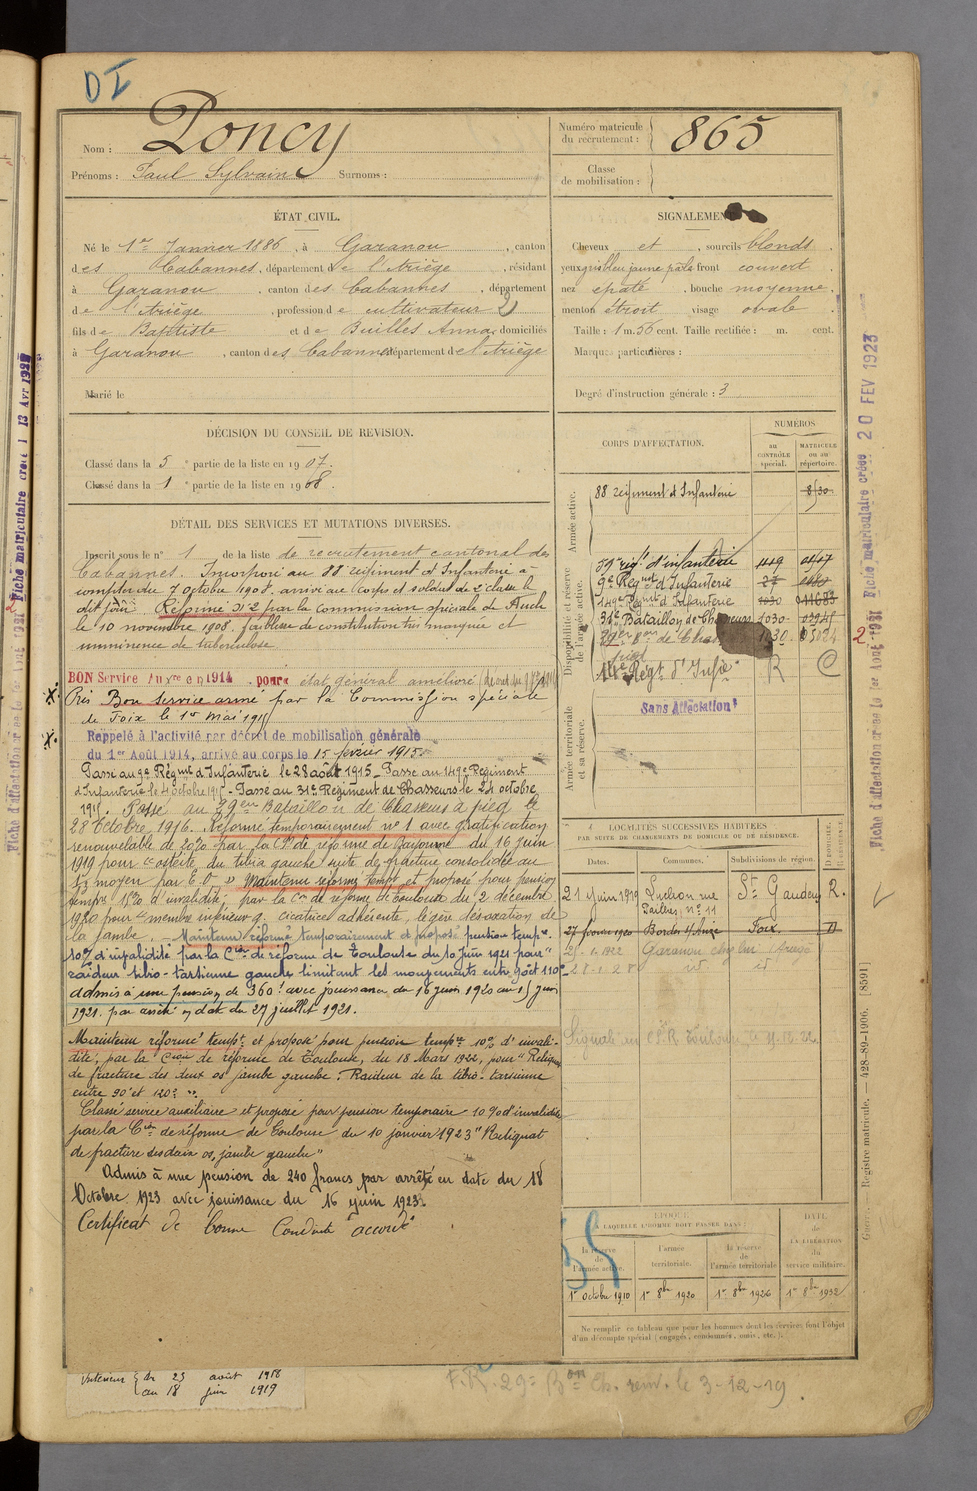 DI
Nom : Poncy
Prénoms : Paul Sylvain Surnoms :
Numéro matricule du recrutement : 865
Classe de mobilisation :
ÉTAT CIVIL.
Né le 1er Janvier 1886, à Garanou, canton
des Cabannes, département de l'Ariège, résidant
à Garanou, canton des Cabannes, département
de l'Ariège, profession de cultivateur 2
fils de Baptiste et de Builles Anna domiciliés
à Garanou, canton des Cabannes département de l'Ariège
Marié le
SIGNALEMENT
Cheveux et, sourcils blonds.
yeux gris bleu jaune pâle front couvert.
nez épaté, bouche moyenne.
menton étroit visage ovale.
Taille : 1 m. 56 cent. Taille rectifiée : m. cent.
Marques particulières :
Degré d'instruction générale : 3
DÉCISION DU CONSEIL DE REVISION.
Classé dans la 5e partie de la liste en 1907.
Classé dans la 1e partie de la liste en 1908.
DÉTAIL DES SERVICES ET MUTATIONS DIVERSES.
Inscrit sous le n° 1 de la liste de recrutement cantonal des
Cabannes. Incorporé au 88e régiment d'Infanterie à
compter du 7 octobre 1908. arrivé au corps et soldat de 2e classe le
dit jour. Réformé N°2 par la Commission spéciale de Auch
le 10 novembre 1908. faiblesse de constitution très marquée et
imminence de tuberculose.
BON Service Armé en 1914 pour état général amélioré
Pris Bon service armé par la Commission spéciale
de Foix le 1er Mai 1915
Rappelé à l'activité par décret de mobilisation générale
du 1er Août 1914, arrivé au corps le 15 février 1915.
Passé au 9e Régmt d'Infanterie le 28 août 1915 - Passé au 149e Régiment
d'Infanterie le 4 octobre 1915 - Passé au 31e Régiment de Chasseurs le 24 octobre
1915. Passé au 29em Bataillon de Chasseurs à pied le
28 Octobre 1916. Réformé temporairement n°1 avec gratification
renouvelable de 20% par la Con de réforme de Bayonne du 16 juin
1919 pour "ostéite du tibia gauche suite de fracture consolidée au
1/3 moyen par E.O" Maintenu réformé tempre et proposé pour pension
tempre 15% d'invalidité, par la Con de réforme de Toulouse du 2 décembre
1920 pour "membre inférieur g. cicatrice adhérente, légère désaxation de
la jambe. - Maintenu réformé temporairement et proposé pension tempre
10% d'invalidité par la Cion de réforme de Toulouse du 10 juin 1921 pour "
raideur tibio-tarsienne gauche limitant les mouvements entre 90 et 110°
admis à une pension de 360f avec jouissance du 16 juin 1920 au 15 juin
1921. par arrêté en date du 27 juillet 1921.
Maintenu réformé tempre et proposé pour pension tempre 10% d'invali-
dité, par la Cion de réforme de Toulouse, du 18 Mars 1922, pour "Reliquat
de fracture des deux os jambe gauche. Raideur de la tibio-tarsienne
entre 90° et 120°".
Classé service auxiliaire et proposé pour pension temporaire 10% d'invalidité
par la Cion de réforme de Toulouse du 10 janvier 1923 "Reliquat
de fracture des deux os, jambe gauche"
Admis à une pension de 240 francs par arrêté en date du 18
Octobre 1923 avec jouissance du 16 juin 1923.
Certificat de bonne Conduite "accordé"
Intérieur { du 23 août 1918
au 18 juin 1919
CORPS D'AFFECTATION.
NUMÉROS
au CONTRÔLE spécial.
MATRICULE ou au répertoire.
Armée active.
88e régiment d'Infanterie 8530
Disponibilité et réserve de l'armée active.
59e régt d'infanterie 449
9e Régmnt d'Infanterie 27
149e Régmnt d'Infanterie 1030 011683
31e Bataillon de Chasseurs 1030
29em Bon de Chas 1030
pied
Régt d'Infie R C
Sans Affectation
Armée territoriale et sa réserve.
LOCALITÉS SUCCESSIVES HABITÉES
PAR SUITE DE CHANGEMENTS DE DOMICILE OU DE RÉSIDENCE.
Dates. Communes. Subdivisions de région. D. DOMICILE. R. RÉSIDENCE.
21 Juin 1919 Luchon rue St Gaudens R.
n° 11
27 février 1920 Bordes s/ Foix. D
Garanou
28-1-28 id id
Signalé au C.S.R. Toulouse, le
ÉPOQUE
À LAQUELLE L'HOMME DOIT PASSER DANS :
DATE de LA LIBÉRATION du service militaire.
la réserve de l'armée active. l'armée territoriale. la réserve de l'armée territoriale
1er octobre 1910 1er 8bre 1920 1er 8bre 1926 1er 8bre 1932
35
Ne remplir ce tableau que pour les hommes dont les services font l'objet
d'un décompte spécial (engagés, condamnés, omis, etc.).
F.R. 29e Bon Ch. renv. le 3-12-19.
Fiche matriculaire créée 20 FEV 1923
Fiche d'affectation créée le 1er Août 1931
2
Registre matricule. — 428-89-1906. [8591]
Fiche matriculaire créée l 13 Avr
Fiche d'affectation créée le 1er Août 1931